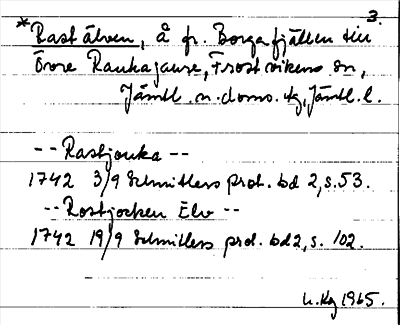 3.
*Rastälven, Å fr. Borgafjällen till
Övre Raukajaure, Frostvikens sn,
Jämtl. n. doms. tg, Jämtl. l.
-- Rastjouka --
1742 3/9 Schnitlers prot. bd 2, s. 53.
-- Rostjocken Elv --
1742 19/9 Schnitlers prot. bd 2, s. 102.
1965.